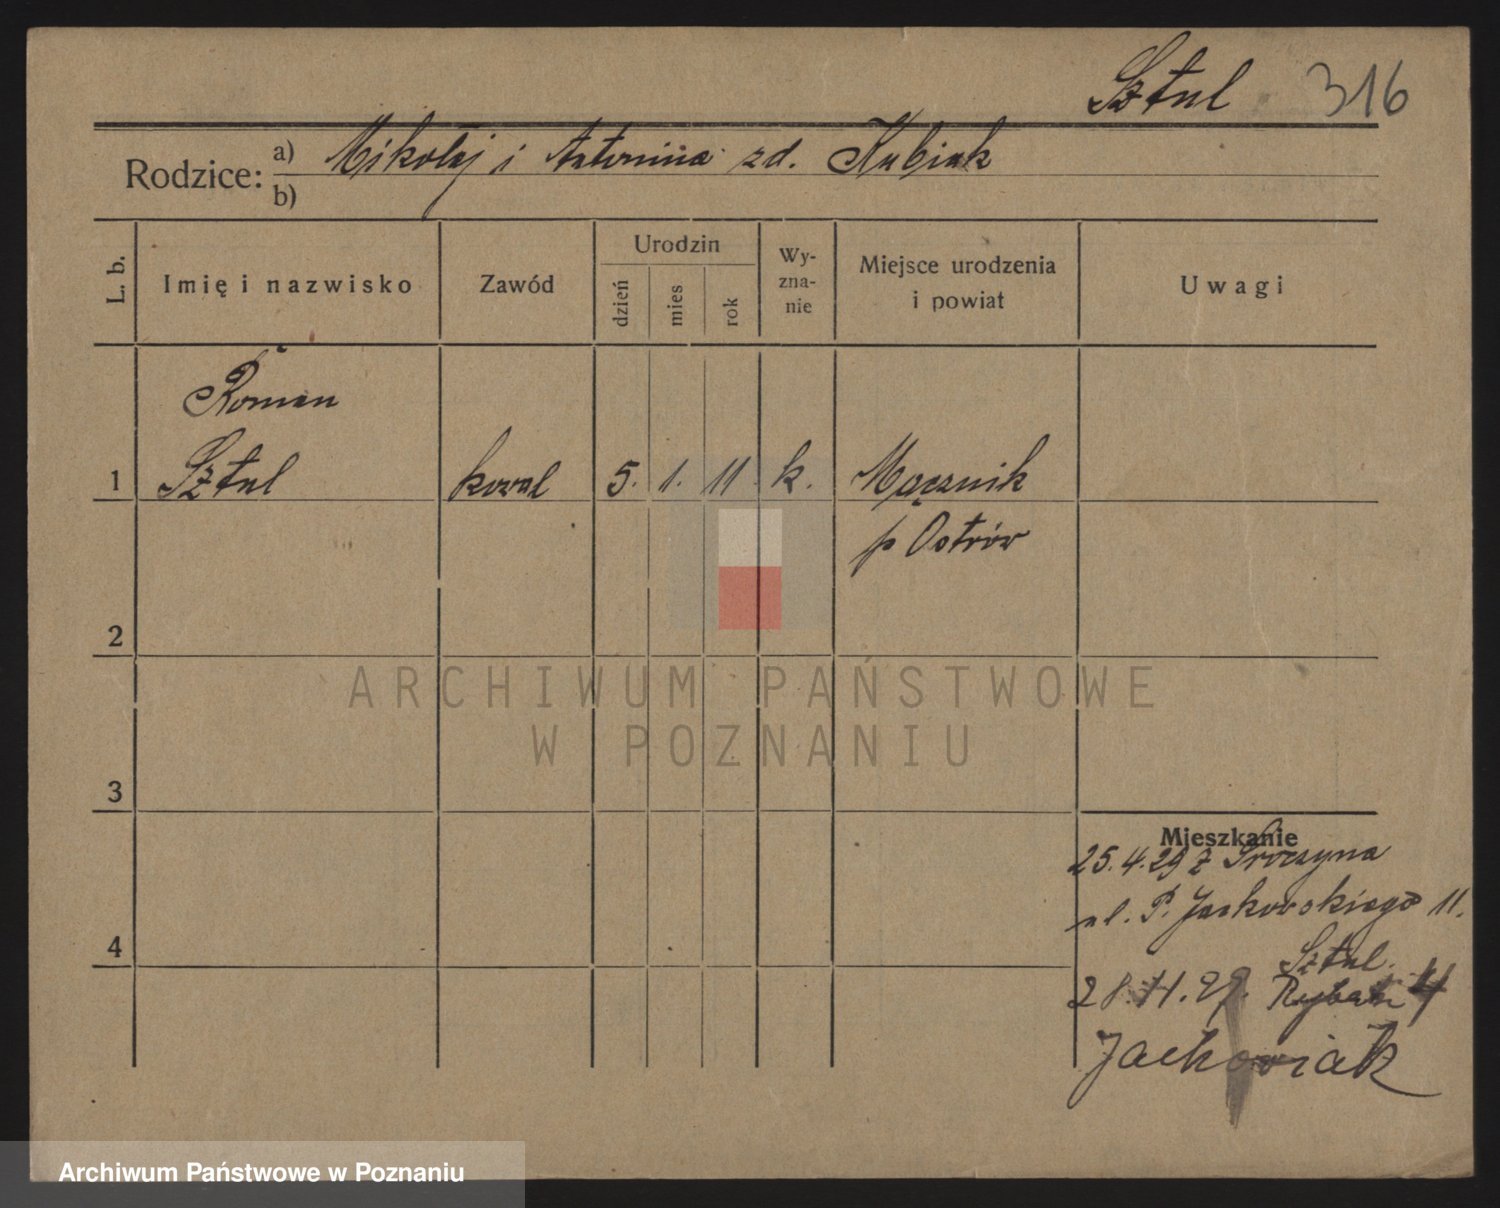 Sztul 316
Rodzice: a) Mikołaj i Antonina zd. Kubiak
b)
L. b.
Imię i nazwisko
Zawód
Urodzin
dzień
mies
rok
Wy-
zna-
nie
Miejsce urodzenia
i powiat
Uwagi
Roman
1 Sztul kowal 5. 1. 11 k. Mącznik
p Ostrów
2
3
4
Mieszkanie
25.4.29 z
ul. P. Jackowskiego 11.
Sztul.
28.11.29. Rybaki 4
Jachowiak
ARCHIWUM PAŃSTWOWE
W POZNANIU
Archiwum Państwowe w Poznaniu